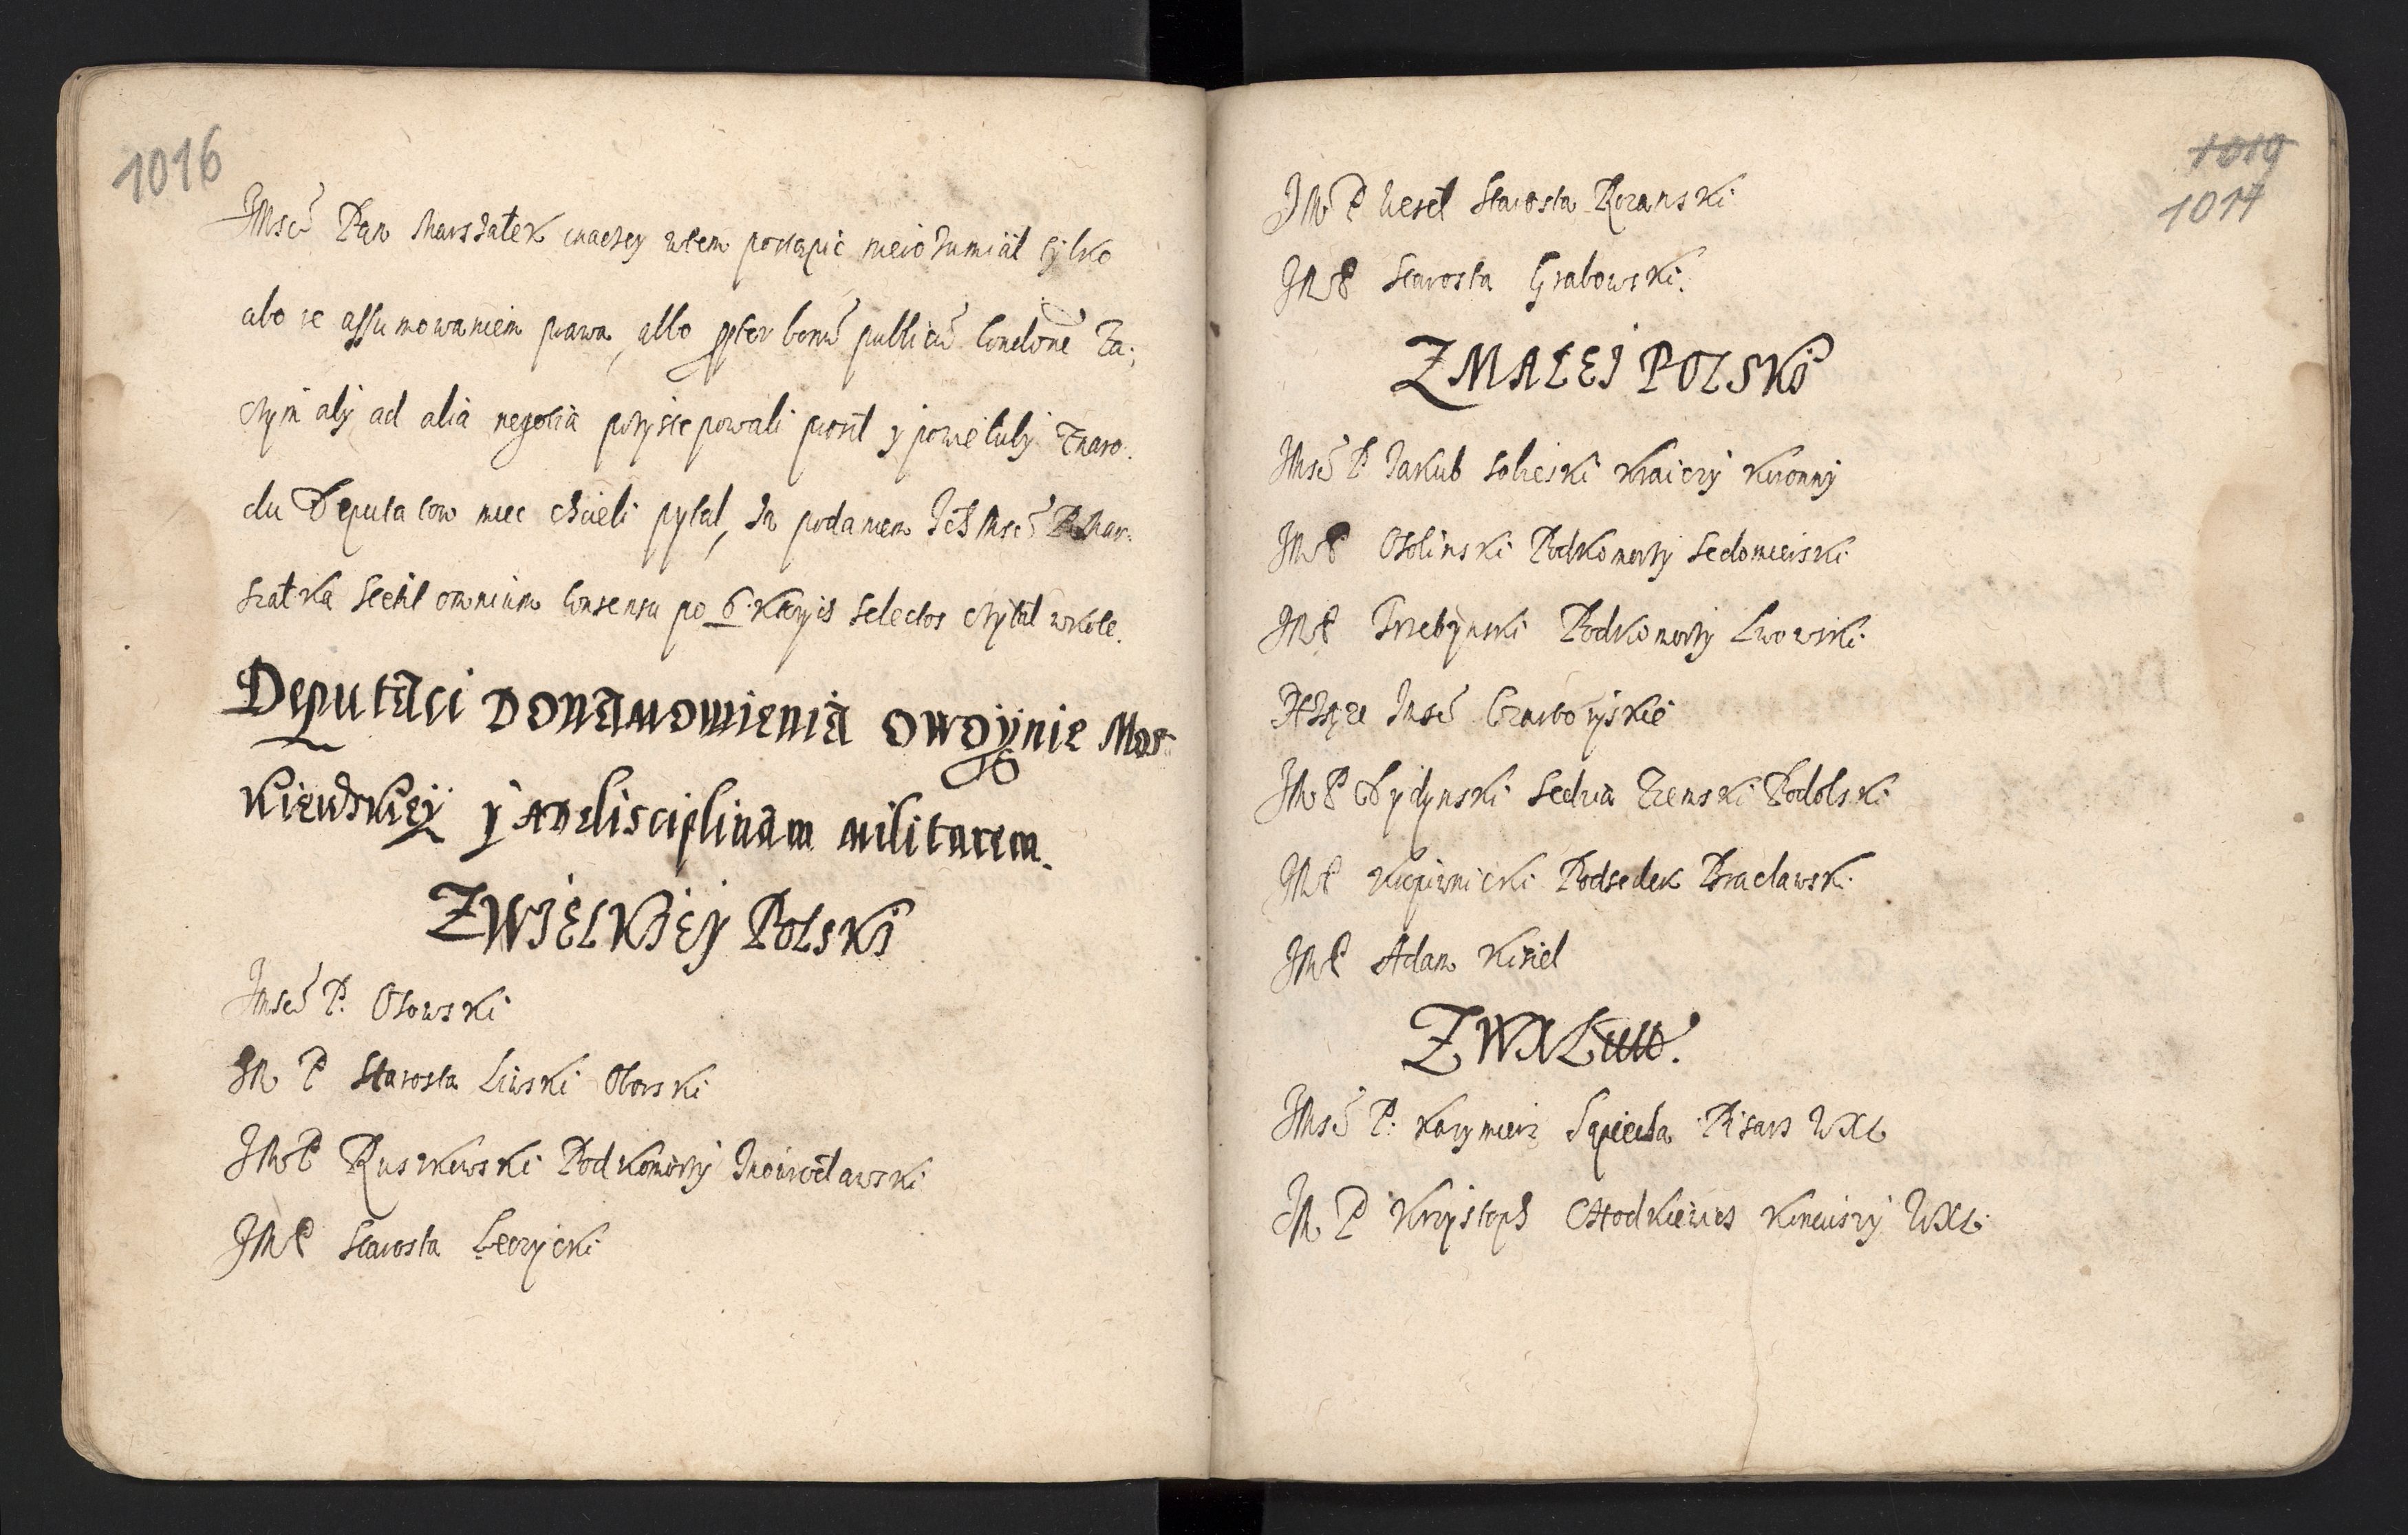 1016
JMsć Pan Marszałek inaczey wtem postąpić nierozumiał tylko
abo re assumowaniem prawa, albo ppter bonū publicū Condone Za:
czym aby ad alia negotia przystepowali prosił y
du Deputatow miec chcieli pytał, Za podaniem Ich Msć P Mar:
szałka Scessit omnium Consensu po 6. Selectos czytał wkole.
Deputaci Do namowienia owoynie Mos
kiewskiey y ad disciplinam militarem.
Z WIELKIEY POLSKI
JMsć P. Osowski
JM P Starosta Liwski Oborski
JMP Ruszkowski Podkomorzy Inowrocławski
JMP Starosta Łęczycki
1019
1017
JM P Uesel Starosta Rozanski
JMP Starosta Grabowski.
Z MAŁEJ POLSKI
JMsć P Jakub Sobieski Kraiczy Koronny
JMP Osolinski Podkomorzy Sedomierski
JMP Trzebinski Podkomorzy Lwowski
Xżże Jmść Czartoryskie
JMP Bydynski Sedzia Ziemski Podolski
JMP Kropiwnicki Podsedek Bracławski
JMP Adam Kisiel
Z W X Litto.
JMsć P. Kazymierz Sapieha Pisarz WXL
JM P Krzystoph Chodkiewicz Koniuszy WXL